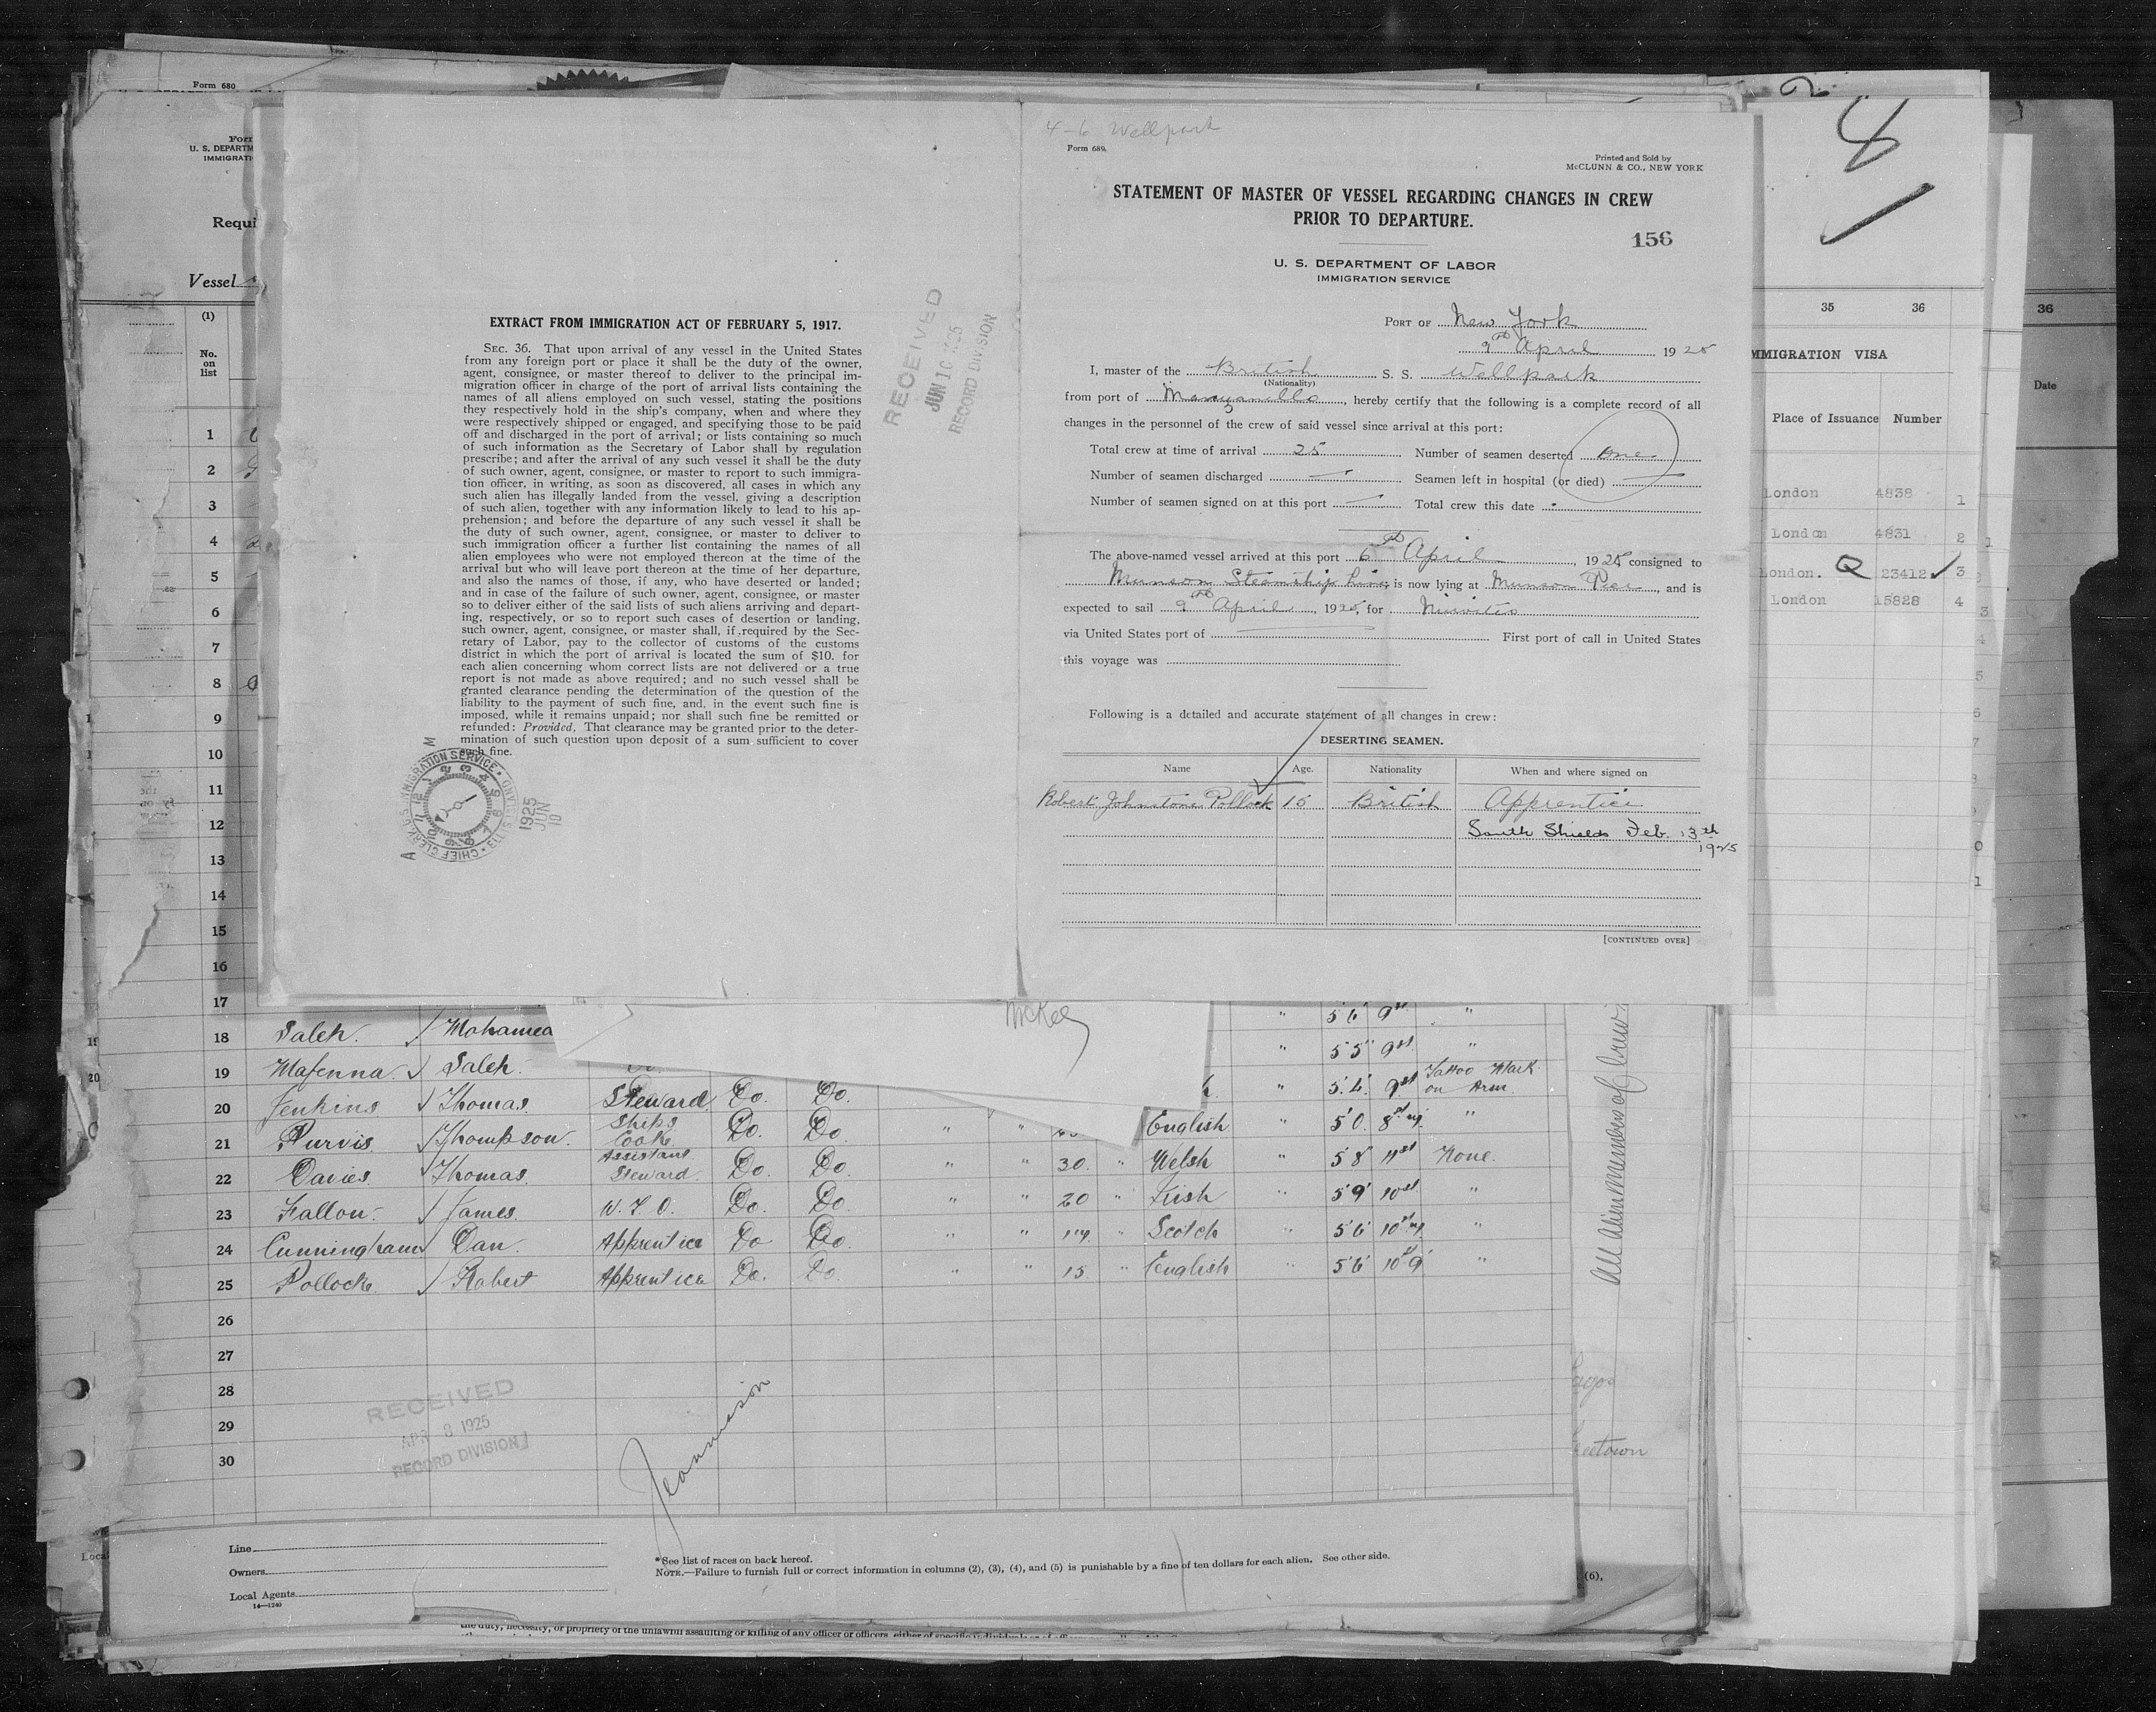 Form 680
Form
U. S. DEPARTM
IMMIGRATI
Requi
Vessel
(1)
No.
on
list
1
2
3
4
5
6
7
8
9
10
11
12
13
14
15
16
17
EXTRACT FROM IMMIGRATION ACT OF FEBRUARY 5, 1917.
SEC. 36. That upon arrival of any vessel in the United States
from any foreign port or place it shall be the duty of the owner,
agent, consignee, or master thereof to deliver to the principal im-
migration officer in charge of the port of arrival lists containing the
names of all aliens employed on such vessel, stating the positions
they respectively hold in the ship's company, when and where they
were respectively shipped or engaged, and specifying those to be paid
off and discharged in the port of arrival; or lists containing so much
of such information as the Secretary of Labor shall by regulation
prescribe; and after the arrival of any such vessel it shall be the duty
of such owner, agent, consignee, or master to report to such immigra-
tion officer, in writing, as soon as discovered, all cases in which any
such alien has illegally landed from the vessel, giving a description
of such alien, together with any information likely to lead to his ap-
prehension; and before the departure of any such vessel it shall be
the duty of such owner, agent, consignee, or master to deliver to
such immigration officer a further list containing the names of all
alien employees who were not employed thereon at the time of the
arrival but who will leave port thereon at the time of her departure,
and also the names of those, if any, who have deserted or landed;
and in case of the failure of such owner, agent, consignee, or master
so to deliver either of the said lists of such aliens arriving and depart-
ing, respectively, or so to report such cases of desertion or landing,
such owner, agent, consignee, or master shall, if required by the Sec-
retary of Labor, pay to the collector of customs of the customs
district in which the port of arrival is located the sum of $10. for
each alien concerning whom correct lists are not delivered or a true
report is not made as above required; and no such vessel shall be
granted clearance pending the determination of the question of the
liability to the payment of such fine, and, in the event such fine is
imposed, while it remains unpaid; nor shall such fine be remitted or
refunded: Provided, That clearance may be granted prior to the deter-
mination of such question upon deposit of a sum sufficient to cover
such fine.
RECEIVED
JUN 10 1925
RECORD DIVISION
IMMIGRATION SERVICE • ELLIS ISLAND • CHIEF CLERK
1925
JUN
10
4-6 Wellpark
Form 689.
Printed and Sold by
McCLUNN & CO., NEW YORK
STATEMENT OF MASTER OF VESSEL REGARDING CHANGES IN CREW
PRIOR TO DEPARTURE.
156
U. S. DEPARTMENT OF LABOR
IMMIGRATION SERVICE
PORT OF New York
9th April 1925
I, master of the British S. S. Wellpark
(Nationality)
from port of Manzanillo, hereby certify that the following is a complete record of all
changes in the personnel of the crew of said vessel since arrival at this port:
Total crew at time of arrival 25 Number of seamen deserted One
Number of seamen discharged — Seamen left in hospital (or died) —
Number of seamen signed on at this port — Total crew this date
The above-named vessel arrived at this port 6th April, 1925 consigned to
Munson Steamship Line, is now lying at Munson Pier, and is
expected to sail 9th April, 1925, for Nuevitas
via United States port of — First port of call in United States
this voyage was
Following is a detailed and accurate statement of all changes in crew:
DESERTING SEAMEN.
Name Age. Nationality When and where signed on
Robert Johnstone Pollock 15 British Apprentice
South Shields Feb. 13th
1925
[CONTINUED OVER]
8
35 36
IMMIGRATION VISA
Place of Issuance Number
London 4838 1
London 4831 2
London. Q 23412 ✓ 3
London 15828 4
36
Date
McKee
5'6 9st "
18 Saleh. / Mohamed " 5'5 9st "
19 Mafenna. / Saleh. Do. " 5.6 9st Tattoo Mark on Arm
20 Jenkins / Thomas. Steward. Do. Do. English " 5'0. 8st "
21 Purvis. / Thompson. Ships Cook. Do. Do. " " 30. " Welsh " 5'8 11st None.
22 Davies. / Thomas. Assistant Steward. Do. Do.
23 Fallon. / James. W. T. O. Do. Do. " " 20 " Irish " 5'9 10st "
24 Cunningham / Dan. Apprentice Do Do. " " 17. " Scotch " 5'6 10st "
25 Pollock. / Robert Apprentice Do. Do. " " 15. " English " 5'6 10st 9 "
26
27
28
29
30
All Alien Members of Crew
RECEIVED
APR 8 1925
RECORD DIVISION
Jeannison
Line
Owners
Local Agents
14—1240
*See list of races on back hereof.
NOTE.—Failure to furnish full or correct information in columns (2), (3), (4), and (5) is punishable by a fine of ten dollars for each alien. See other side.
(6),
the duty, necessity, or propriety of the unlawful assaulting or killing of any officer or officers, either of specific individuals or of